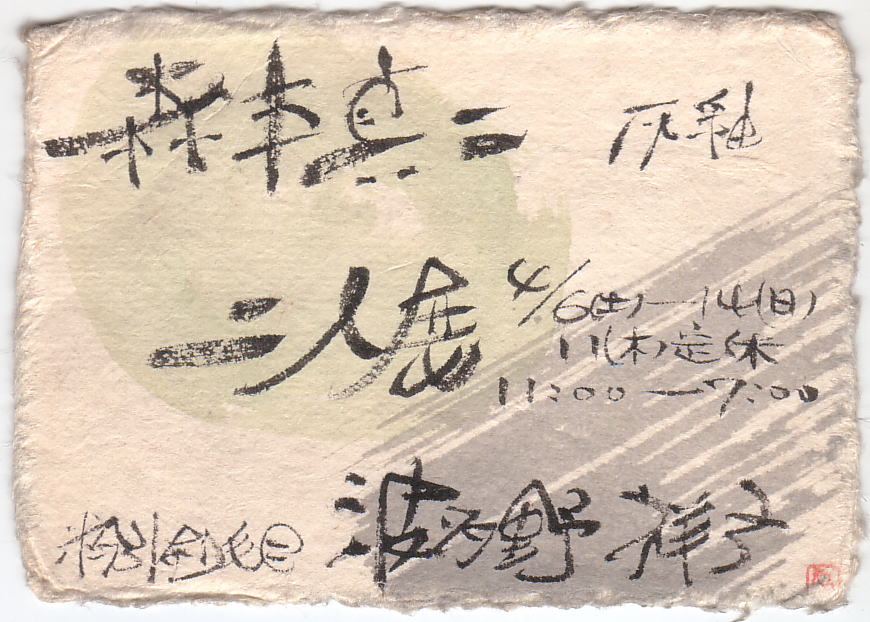 森本真二 灰釉
二人展
4/6(土)―14(日)
11(木)定休
11:00―7:00
波多野祥子